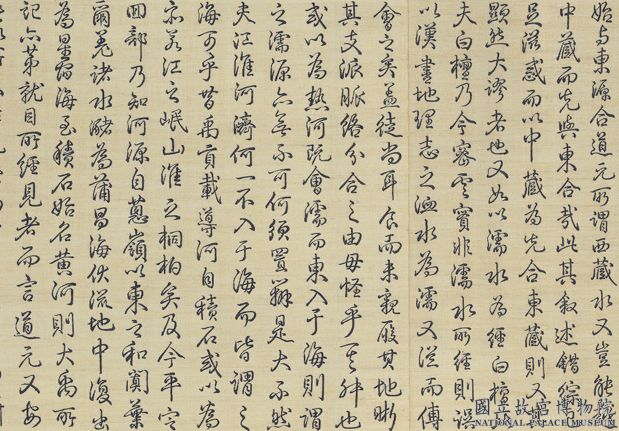 始与東源合道元所謂西藏水又豈能
中藏而先與東合哉此其叙述錯綜
足滋惑而以中藏為先合東藏則又
顯然大謬者也又如以濡水為經白檀
夫白檀乃今密雲實非濡水所經則誤
以漢書地理志之洫水為濡又從而傅
會之矣盖徒尚耳食而未親履其地晰
其支派脈絡分合之由毋怪乎其舛也
或以為熱河既會濡而東入于海則謂
之濡源亦無不可何須置辯是大不然
夫江淮河濟何一不入于海而皆謂之
海可乎昔禹貢載導河自積石或以為
亦若江之岷山淮之桐柏矣及今平定
回部乃知河源自蔥嶺以東之和闐葉
爾羌諸水瀦為蒲昌海伏流地中復出
為星宿海至積石始名黃河則大禹所
記亦第就目所經見者而言道元又安
國立故宮博物院
NATIONAL PALACE MUSEUM